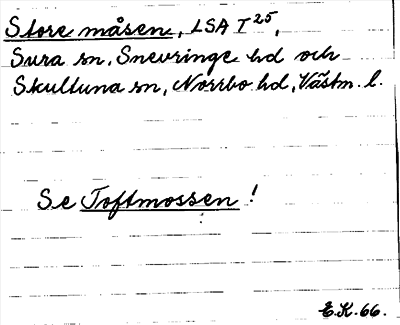 Store måsen, LSA T 25,
Sura sn, Snevringe hd och
Skultuna sn, Norrbo hd, Västm. l.
Se Toftmossen!
E.K. 66.